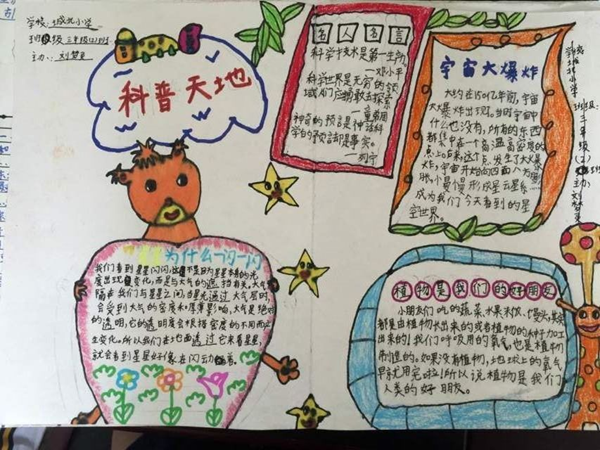 学校:城北小学
班级三年级(2)班
主办:刘梦
科普天地
名人名言
科学技术是第一生产力
—邓小平
科学世界是无穷的领
域,人们应当勇敢去探索
—童第周
神奇的预言是神话科
学的预言却是事实。
—列宁
宇宙大爆炸
大约在150亿年前,宇宙
大爆炸出现。当时宇宙中
什么也没有,所有的东西
都集中在一个高温高密度的
点上。后来,这个点发生了大爆
炸,宇宙开始向四面八方膨
胀,慢慢形成星云星系
成为我们今天看到的星
空世界。
学校:城北小学
班级:三年级(2)班
主办:刘梦
为什么一闪一闪
我们看到星星闪闪,这不是因为星星本身的光
度出现变化,而是与大气的遮挡有关,大气
隔在我们与星星之间,当星光通过大气层时,
会受到大气的密度和厚薄影响,大气是绝对
的透明,它的透明度会根据密度的不同而产
生变化。所以我们在地面透过它来看星星,
就会看到星星好象在闪动着。
植物是我们的好朋友
小朋友们吃的蔬菜水果木饮、馒头、果酱
都是由植物长出来的或者植物的果籽加工
出来的。我们呼吸用的氧气也是植物
制造的。如果没有植物,地球上的氧气
早就用完啦!所以说植物是我们
人类的好朋友。